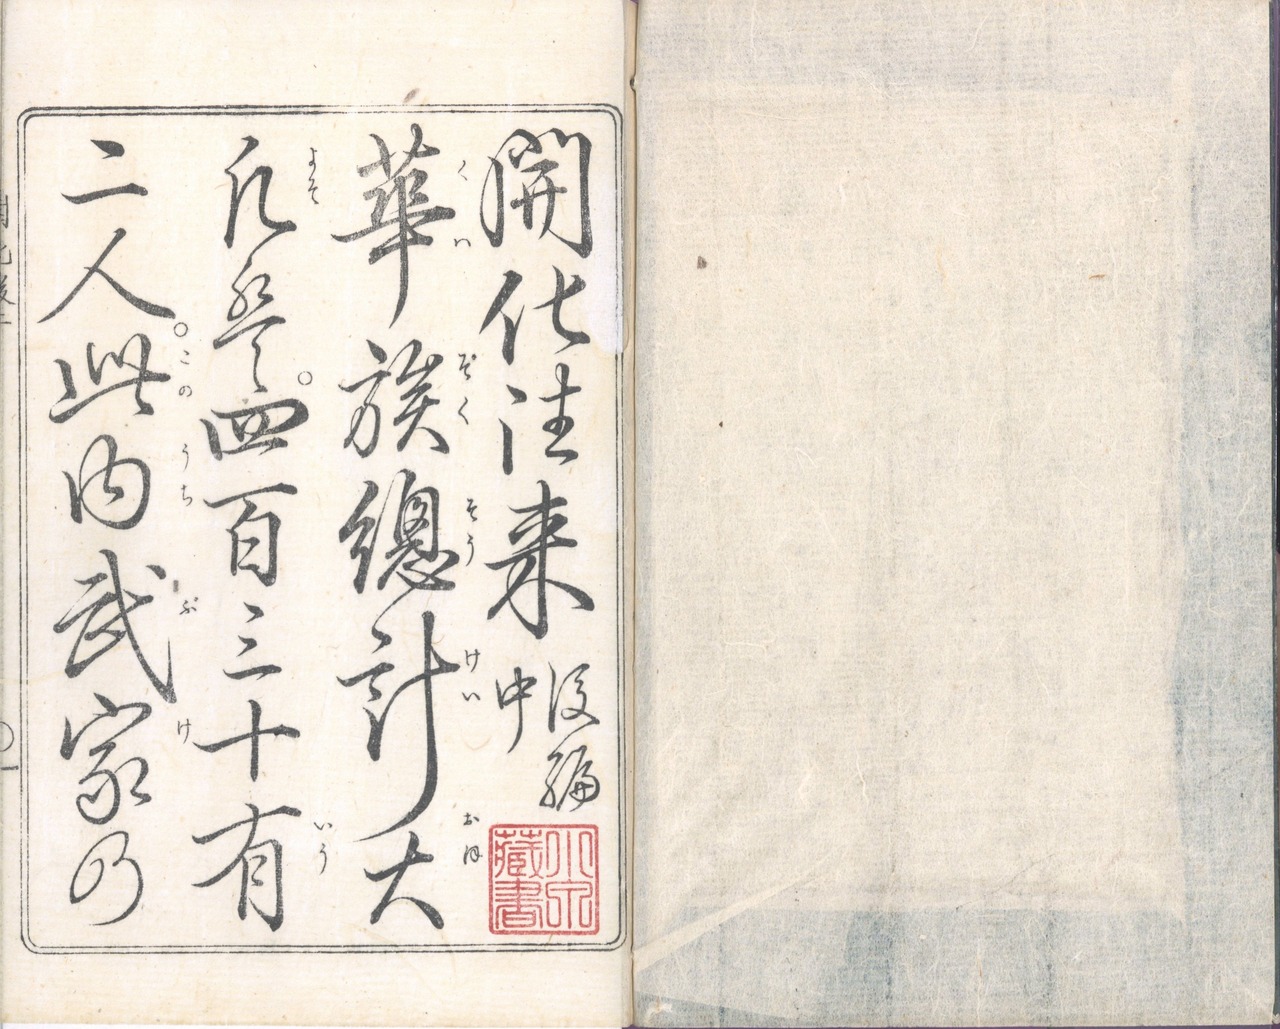 開化往来 後編
中
くわ ぞく そう けい おほ
華族總計大
よそ いう
凡。四百三十有
この うち ぶ け
二人。此内武家乃
藏書